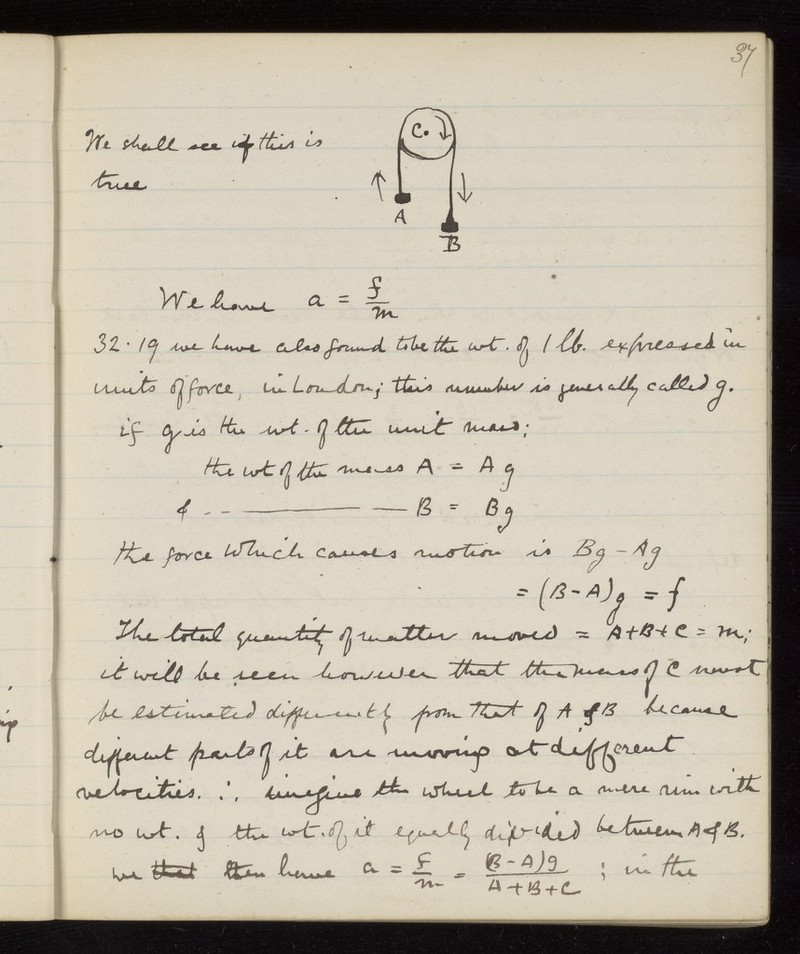 37
We shall see if this is
true
C.
A
B
We have a = f/m
32·19 we have also found to be the wt. of 1 lb. expressed in
units of force, in London; this number is generally called g.
if g is the wt. of the unit mass;
the wt of the mass A = Ag
& - - ———— — B = Bg
the force which causes motion is Bg - Ag
= (B-A)g = f
The total quantity of matter moved = A+B+C = m;
it will be seen however that the mass of C must
be estimated differently from that of A & B because
different parts of it are moving at different
velocities. ∴ imagine the wheel to be a mere rim with
no wt. & the wt. of it equally divided between A & B.
we that then have a = f/m = (B-A)g/A+B+C ; in the